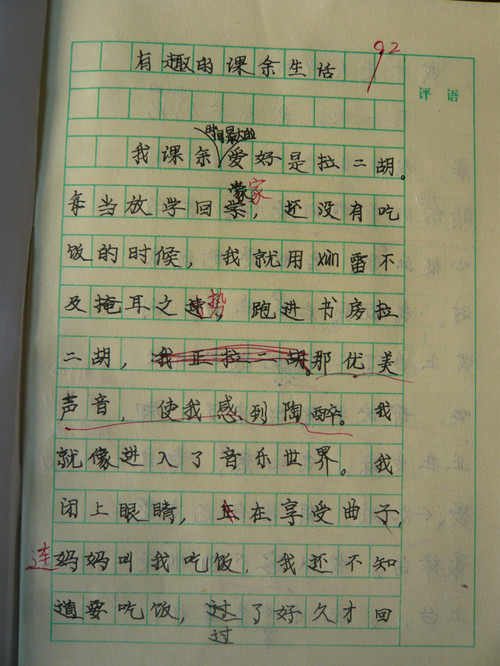 有趣的课余生活
92
评语
时间最大的
我课余爱好是拉二胡。
家
每当放学回家，还没有吃
饭的时候，我就用xùn雷不
势
及掩耳之速，跑进书房拉
二胡，我正拉二胡。那优美
声音，使我感到陶醉。我
就像进入了音乐世界。我
闭上眼睛，正在享受曲子，
连妈妈叫我吃饭，我还不知
道要吃饭，过了好久才回
过